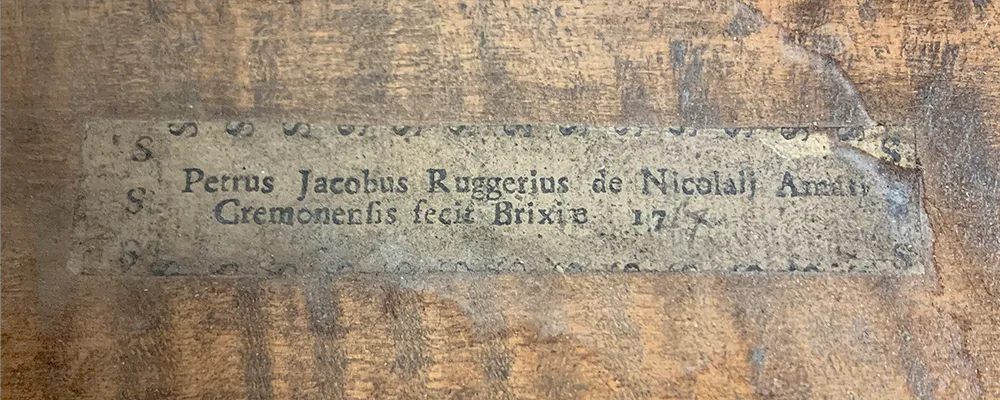 Petrus Jacobus Ruggerius de Nicolaij Amati
Cremonenſis fecit Brixiæ 17